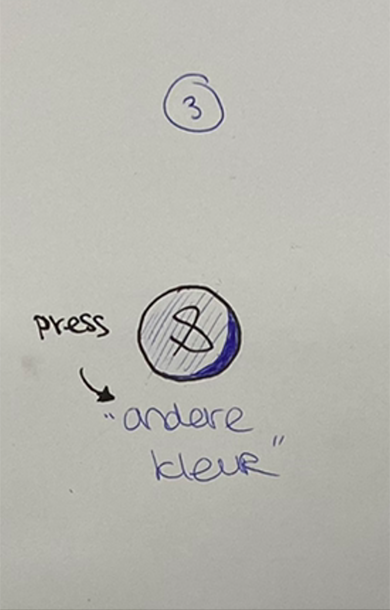 3
press
8
"andere
kleur"